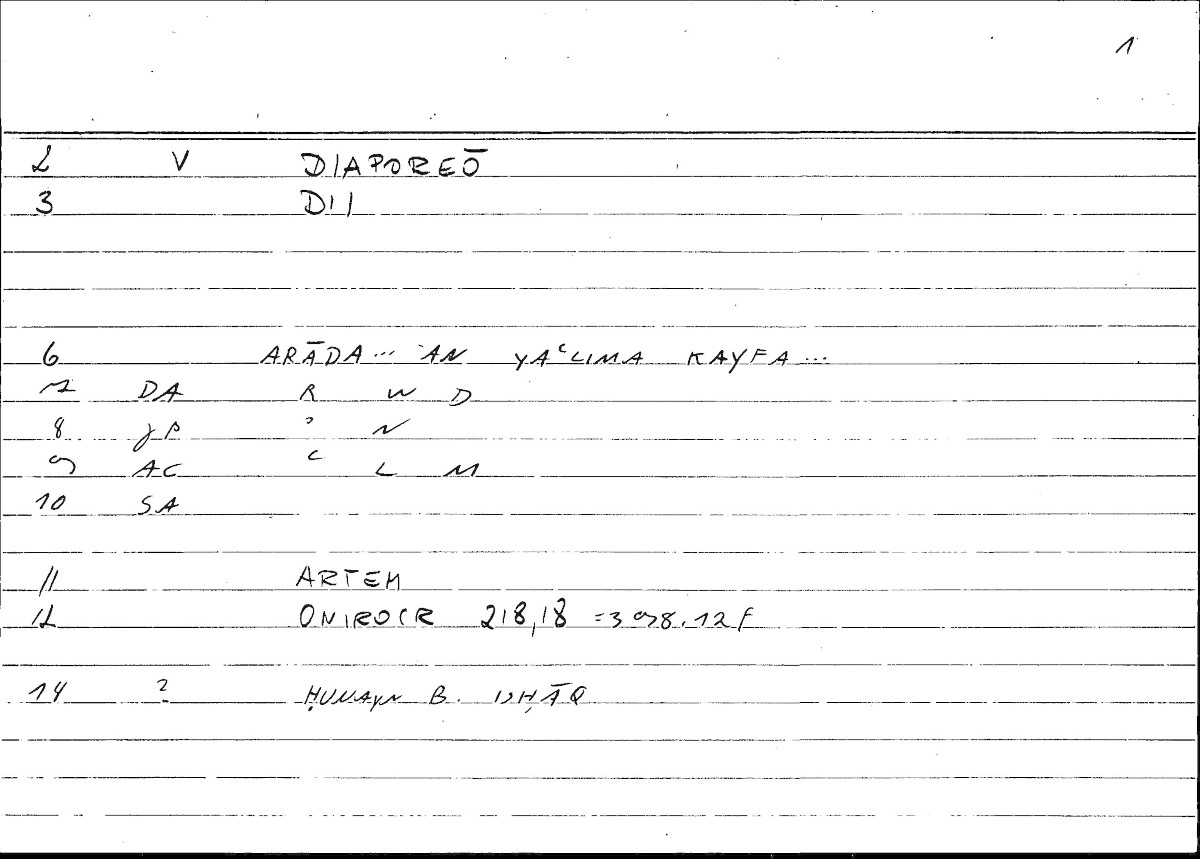 1
2 V DIAPOREŌ
3 D I I
6 ARĀDA... ʾAN YAʿLIMA KAYFA...
7 DA R W D
8 JP ʾ N
9 AC ʿ L M
10 SA
11 ARTEM
12 ONIROCR 218,18 = 398.12 f
14 ? ḤUNAYN B. ISḤĀQ